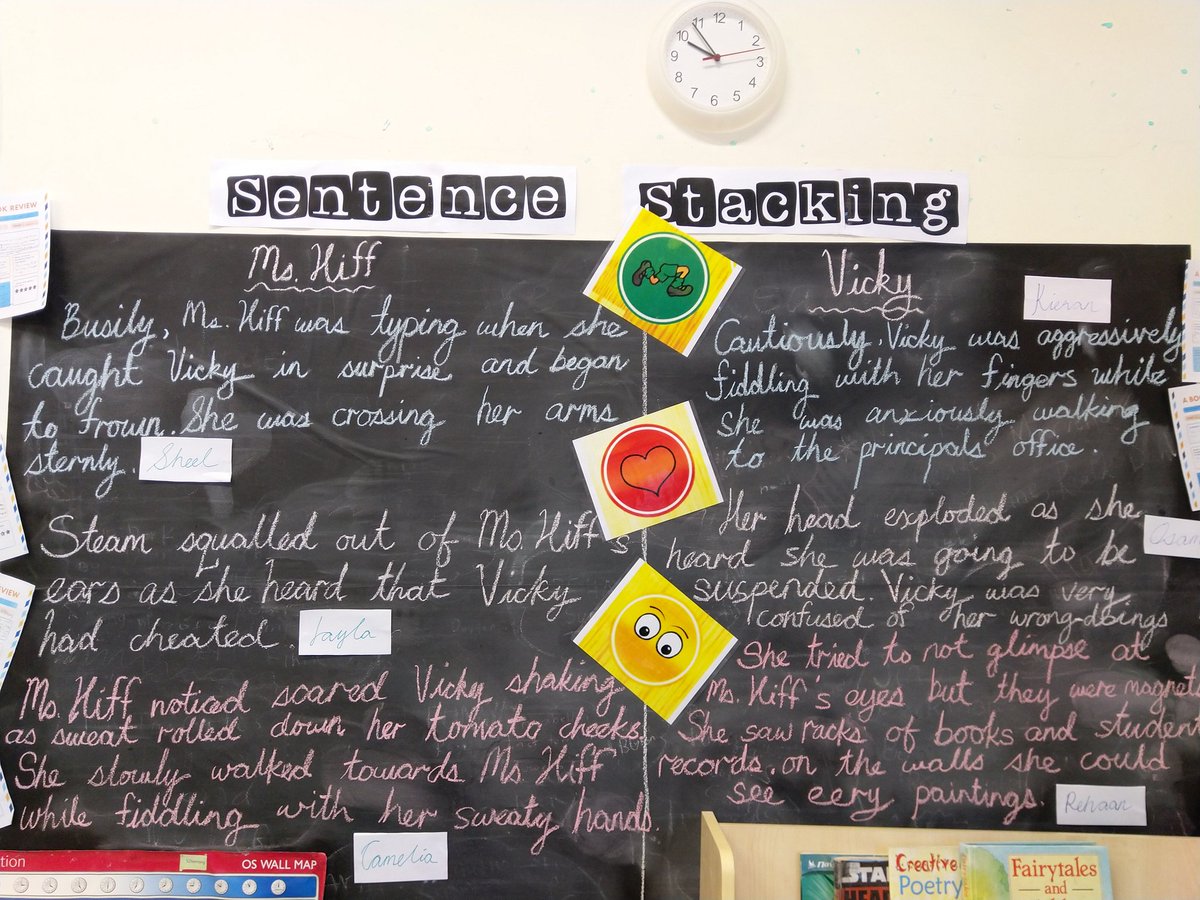 12
1
2
3
4
5
6
7
8
9
10
11
Sentence Stacking
OK REVIEW
Ms. Hiff
Busily, Ms. Hiff was typing when she
caught Vicky in surprise and began
to frown. She was crossing her arms
sternly. Sheel
Steam squalled out of Ms. Hiff's
ears as she heard that Vicky
had cheated. Layla
Ms. Hiff noticed scared Vicky shaking
as sweat rolled down her tomato cheeks.
She slowly walked towards Ms Hiff
while fiddling with her sweaty hands.
Camelia
Vicky
Kieran
Cautiously, Vicky was aggressively
fiddling with her fingers while
she was anxiously walking
to the principals office.
Her head exploded as she
heard she was going to be
suspended Vicky was very
confused of her wrong-doings
Osam
She tried to not glimpse at
Ms. Hiff's eyes but they were magnet
She saw racks of books and student
records. on the walls she could
see eery paintings. Rehaan
A BOO
REVIEW
tion
OS WALL MAP
STA
Creative
Poetry
Fairytales
and